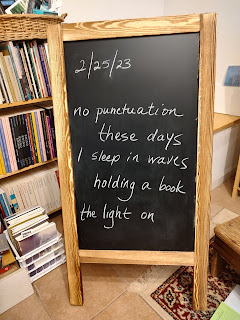 2/25/23
no punctuation
these days
I sleep in waves
holding a book
the light on